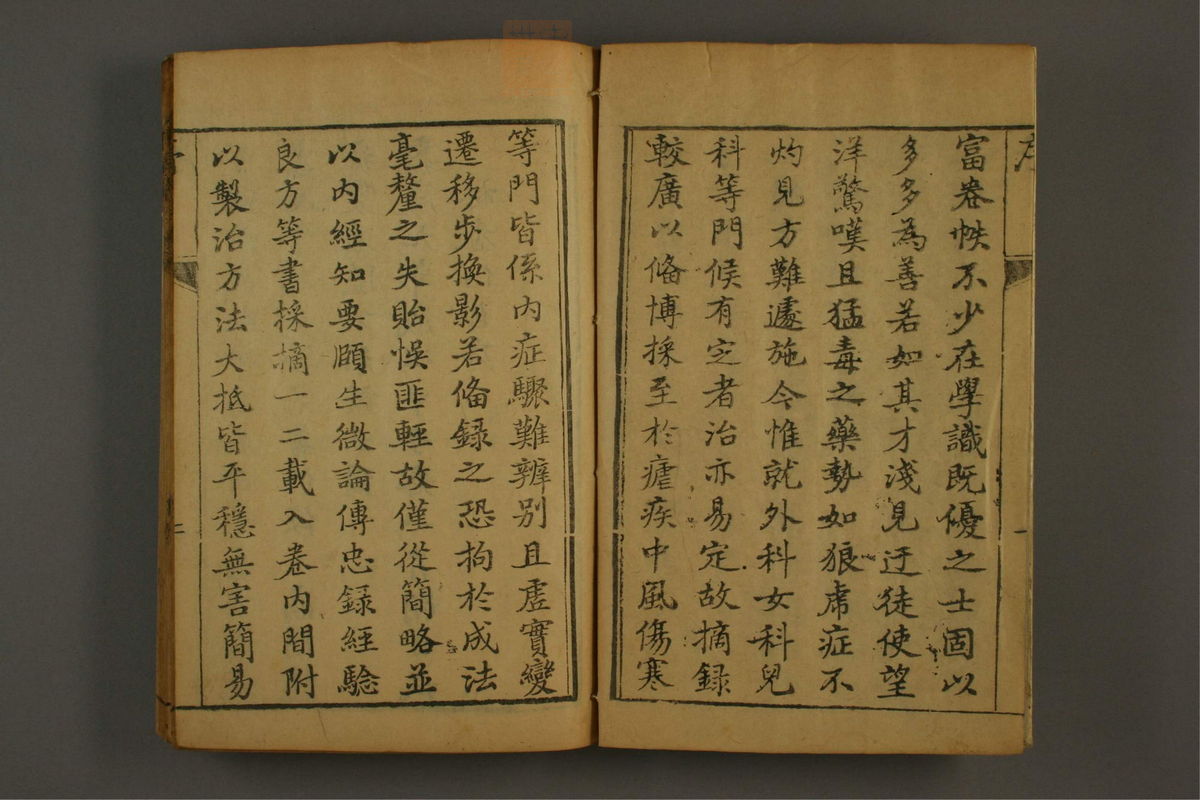 序
富卷帙不少在學識既優之士固以
多多為善若如其才淺見迂徒使望
洋驚嘆且猛毒之藥勢如狼虎症不
灼見方難遽施今惟就外科女科兒
科等門候有定者治亦易定故摘錄
較廣以俻博採至於瘧疾中風傷寒
等門皆係內症驟難辨別且虛實變
遷移步換影若俻錄之恐拘於成法
毫釐之失貽悞匪輕故僅從簡略並
以內經知要頤生微論傳忠録經驗
良方等書採摘一二載入卷內間附
以製治方法大抵皆平穩無害簡易